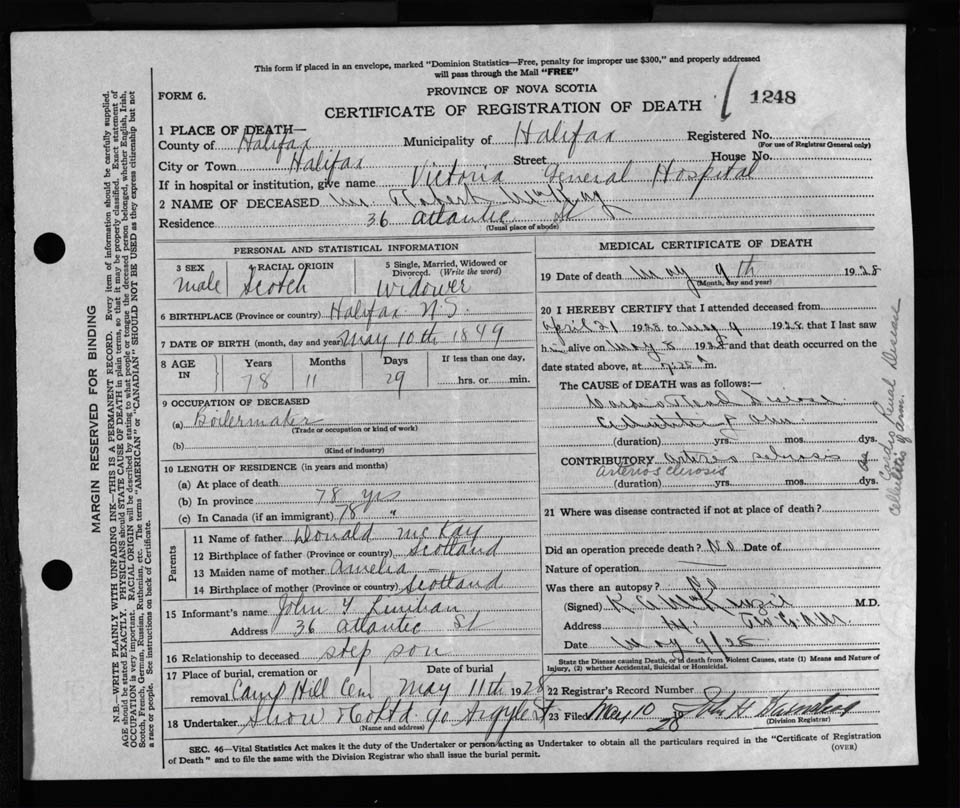 This form if placed in an envelope, marked "Dominion Statistics—Free, penalty for improper use $300," and properly addressed
will pass through the Mail "FREE"
FORM 6.
PROVINCE OF NOVA SCOTIA
CERTIFICATE OF REGISTRATION OF DEATH
1248
MARGIN RESERVED FOR BINDING
N.B.—WRITE PLAINLY WITH UNFADING INK—THIS IS A PERMANENT RECORD. Every item of information should be carefully supplied.
AGE should be stated EXACTLY. PHYSICIANS should STATE CAUSE OF DEATH in plain terms, so that it may be properly classified. Exact statement of
OCCUPATION is very important. RACIAL ORIGIN will be described by stating to what people or tongue the deceased person belonged, whether English, Irish,
Scotch, French, German, Russian, Ruthenian, etc. The terms "AMERICAN" or "CANADIAN" SHOULD NOT BE USED as they express citizenship but not
a race or people. See instructions on back of Certificate.
1 PLACE OF DEATH—
County of Halifax Municipality of Halifax Registered No.
(For use of Registrar General only)
City or Town Halifax Street House No.
If in hospital or institution, give name Victoria General Hospital
2 NAME OF DECEASED Mr. Robert McKay
Residence 36 Atlantic St
(Usual place of abode)
PERSONAL AND STATISTICAL INFORMATION
3 SEX 4 RACIAL ORIGIN 5 Single, Married, Widowed or
Divorced. (Write the word)
Male Scotch Widower
6 BIRTHPLACE (Province or country) Halifax N.S.
7 DATE OF BIRTH (month, day and year) May 10th 1849
8 AGE IN Years Months Days If less than one day,
78 11 29 hrs. or min.
9 OCCUPATION OF DECEASED
(a) Boilermaker
(Trade or occupation or kind of work)
(b)
(Kind of industry)
10 LENGTH OF RESIDENCE (in years and months)
(a) At place of death
(b) In province 78 yrs
(c) In Canada (if an immigrant) 78 "
Parents
11 Name of father Donald McKay
12 Birthplace of father (Province or country) Scotland
13 Maiden name of mother Amelia —
14 Birthplace of mother (Province or country) Scotland
15 Informant's name John
Address 36 Atlantic St
16 Relationship to deceased step son
17 Place of burial, cremation or Date of burial
removal Camp Hill Cem May 11th 1928
18 Undertaker Snow & Co Ltd 90 Argyle St
(Name and address)
MEDICAL CERTIFICATE OF DEATH
19 Date of death May 9th 1928
(Month, day and year)
20 I HEREBY CERTIFY that I attended deceased from
April 21 1928 to May 9 1928 that I last saw
him alive on May 8 1928 and that death occurred on the
date stated above, at m.
The CAUSE OF DEATH was as follows:
Cardio Renal Disease
Cellulitis of arm
(duration) yrs. mos. dys.
CONTRIBUTORY Arterio sclerosis
Arteriosclerosis
(duration) yrs. mos. dys.
Cardio Renal Disease
Cellulitis of arm.
21 Where was disease contracted if not at place of death?
Did an operation precede death? No Date of
Nature of operation —
Was there an autopsy?
(Signed) M.D.
Address
Date May 9/28
State the Disease causing Death, or in death from Violent Causes, state (1) Means and Nature of
Injury, (2) whether Accidental, Suicidal or Homicidal.
22 Registrar's Record Number
23 Filed May 10 28 John H.
(Division Registrar)
SEC. 46—Vital Statistics Act makes it the duty of the Undertaker or person acting as Undertaker to obtain all the particulars required in the "Certificate of Registration
of Death" and to file the same with the Division Registrar who shall issue the burial permit.
(OVER)